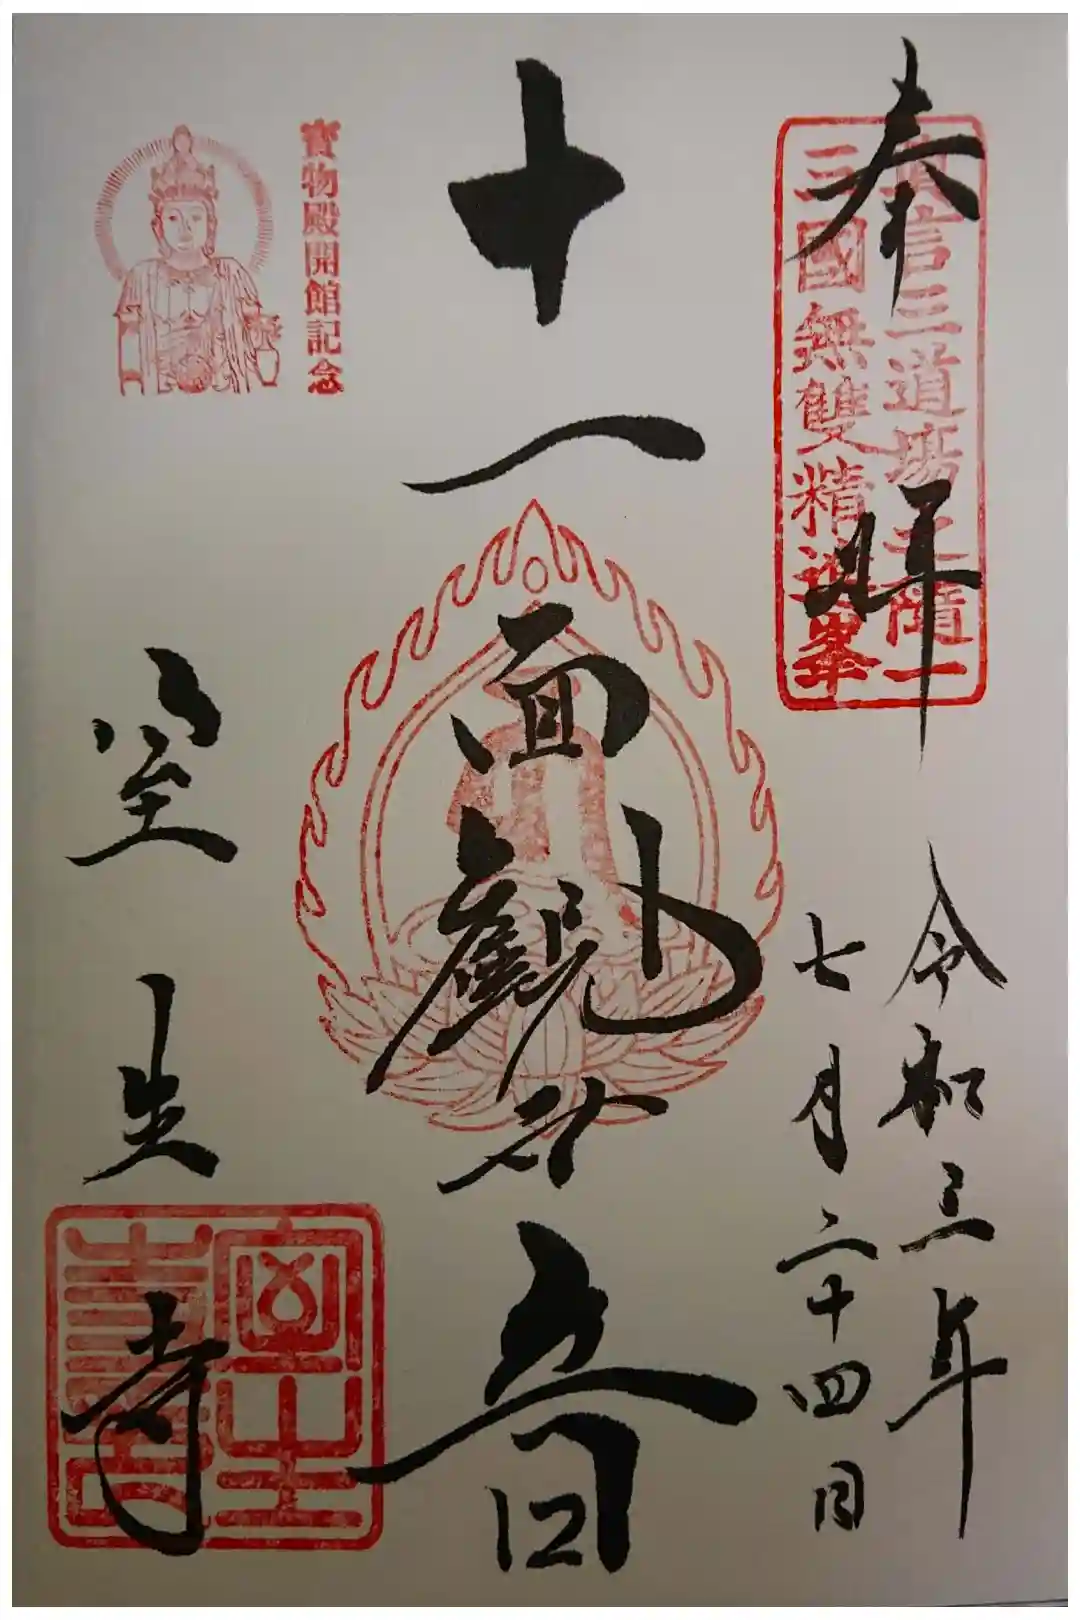 奉拝
眞言三道場之隨一
三國無雙精進峯
令和三年
七月二十四日
十一面觀世音
寳物殿開館記念
室生寺